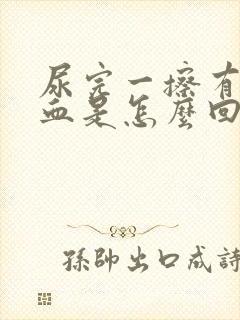 尿完一擦有
血是怎麼回
孫帥出口成詩